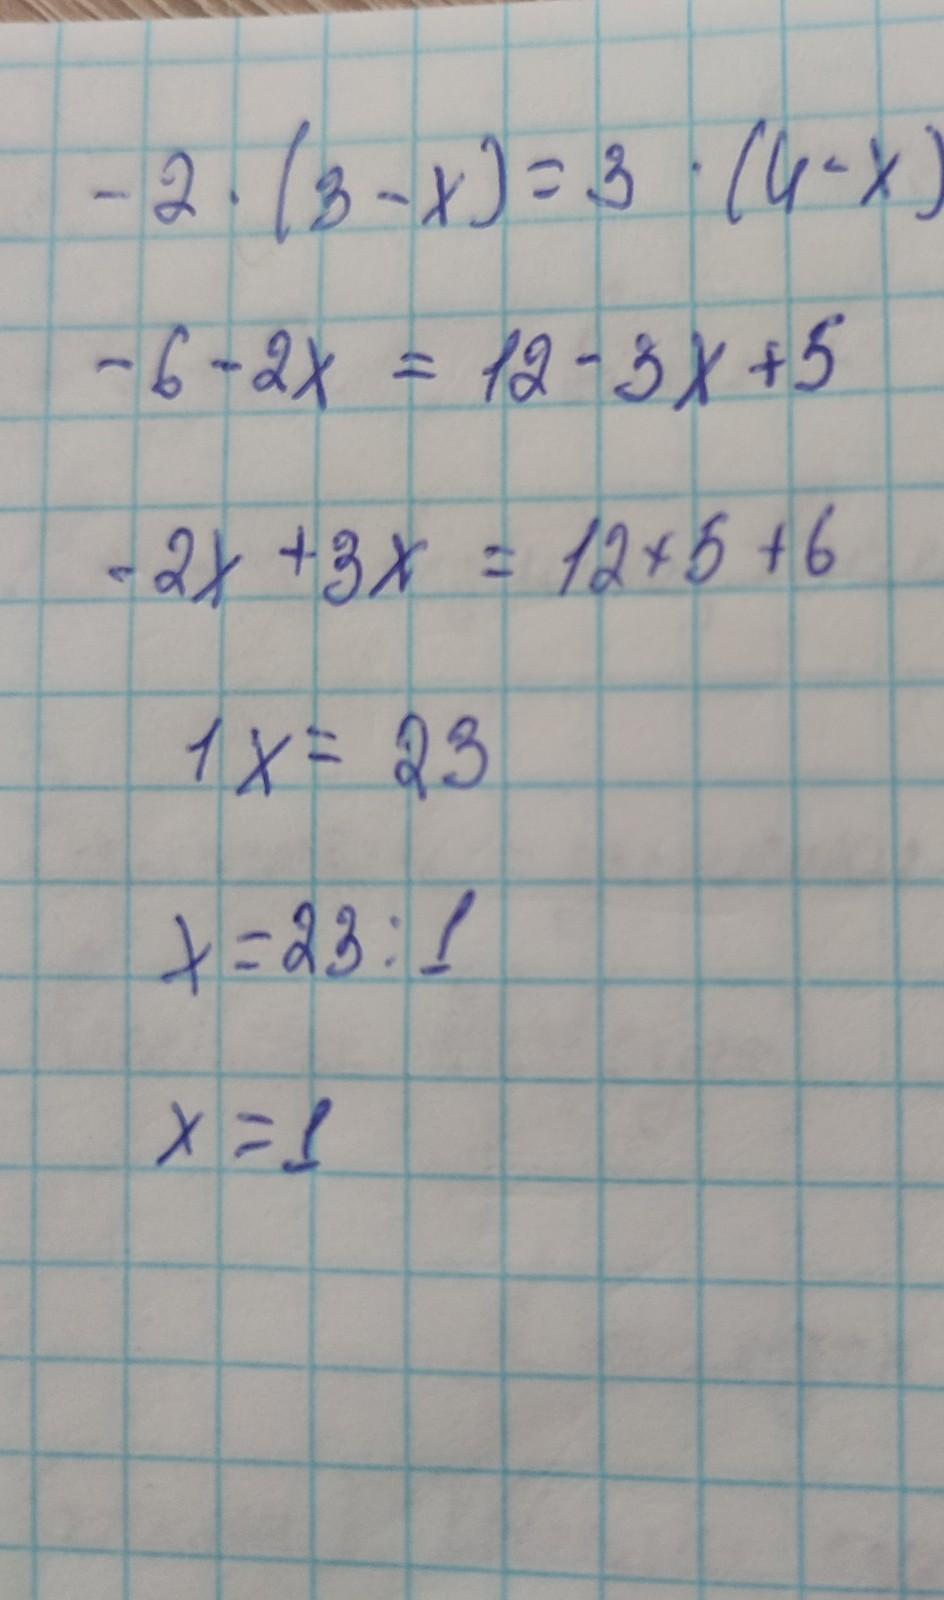 -2·(3-x)=3·(4-x)
-6-2x=12-3x+5
-2x+3x=12+5+6
1x=23
x=23:1
x=1